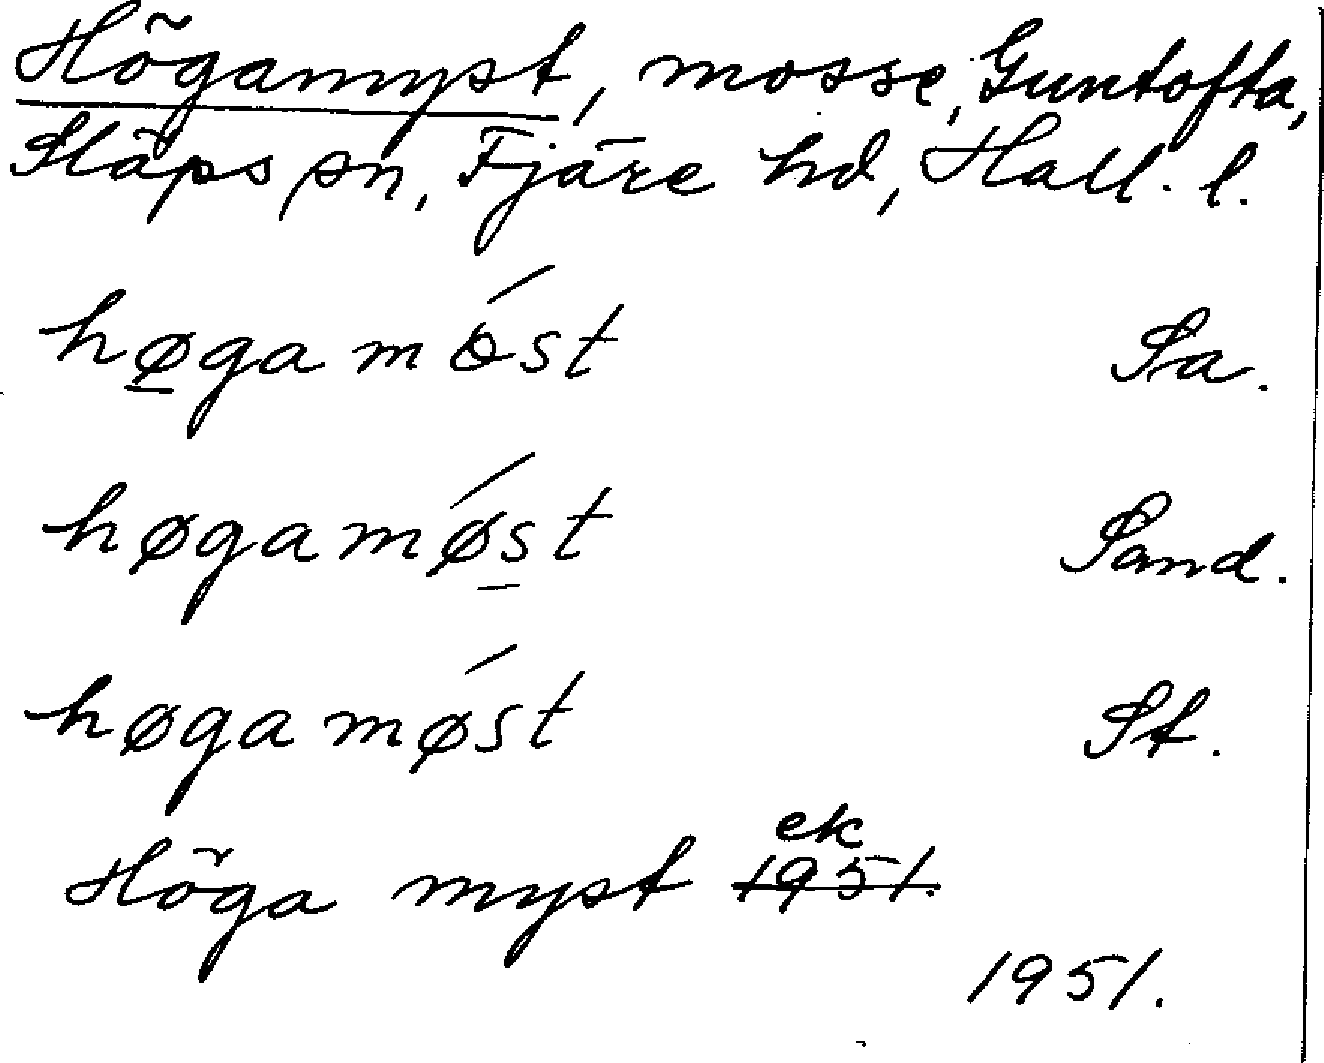 Högamyst, mosse, Guntofta,
Släps sn, Fjäre hd, Hall. l.
høgamöst Sa.
høgamøst Sand.
høgamøst St.
Höga myst ek 1951.
1951.